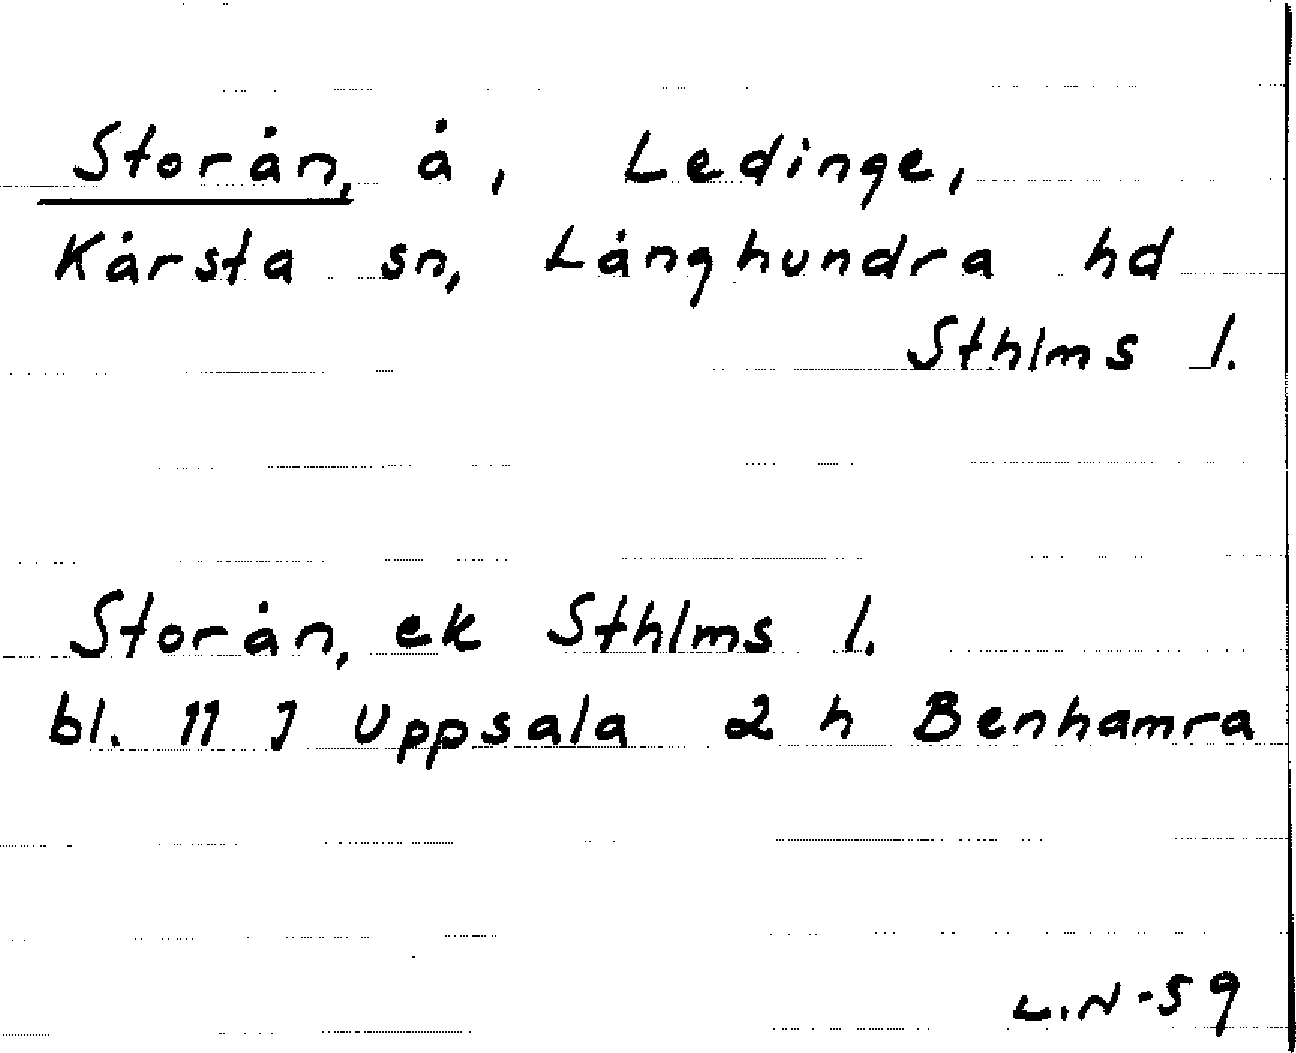 Storån, å, Ledinge,
Kårsta sn, Långhundra hd
Sthlms l.
Storån, ek Sthlms l.
bl. 11 J Uppsala 2 h Benhamra
L.N-59